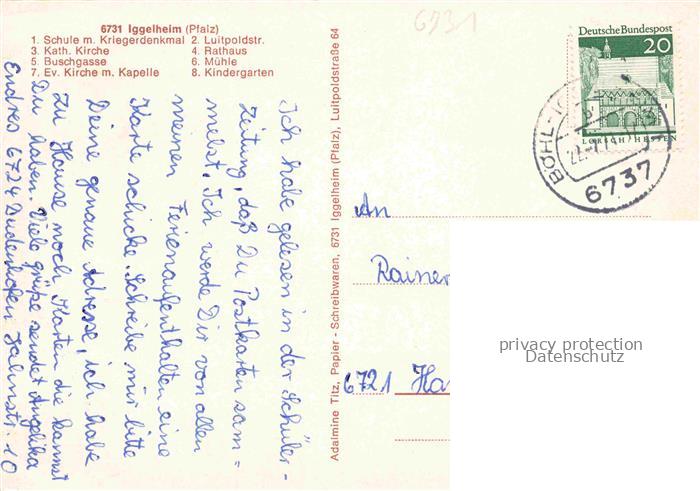 6731 Iggelheim (Pfalz)
1. Schule m. Kriegerdenkmal 2. Luitpoldstr.
3. Kath. Kirche 4. Rathaus
5. Buschgasse 6. Mühle
7. Ev. Kirche m. Kapelle 8. Kindergarten
Ich habe gelesen in der Schüler-
Zeitung, daß Du Postkarten sam=
melst. Ich werde Dir von allen
meinen Ferienaufenthalten eine
Karte schicke. Schreibe mir bitte
Deine genaue Adresse, ich habe
zu Hause noch Karten die kannst
Du haben. Viele Grüße sendet Angelika
Endres 6724 Dudenhofen Jahnstr. 10
Adalmine Titz, Papier - Schreibwaren, 6731 Iggelheim (Pfalz), Luitpoldstraße 64
6731
Deutsche Bundespost
20
LORSCH/HESSEN
BÖHL-
6737
An
Rainer
6721 Ha
privacy protection
Datenschutz